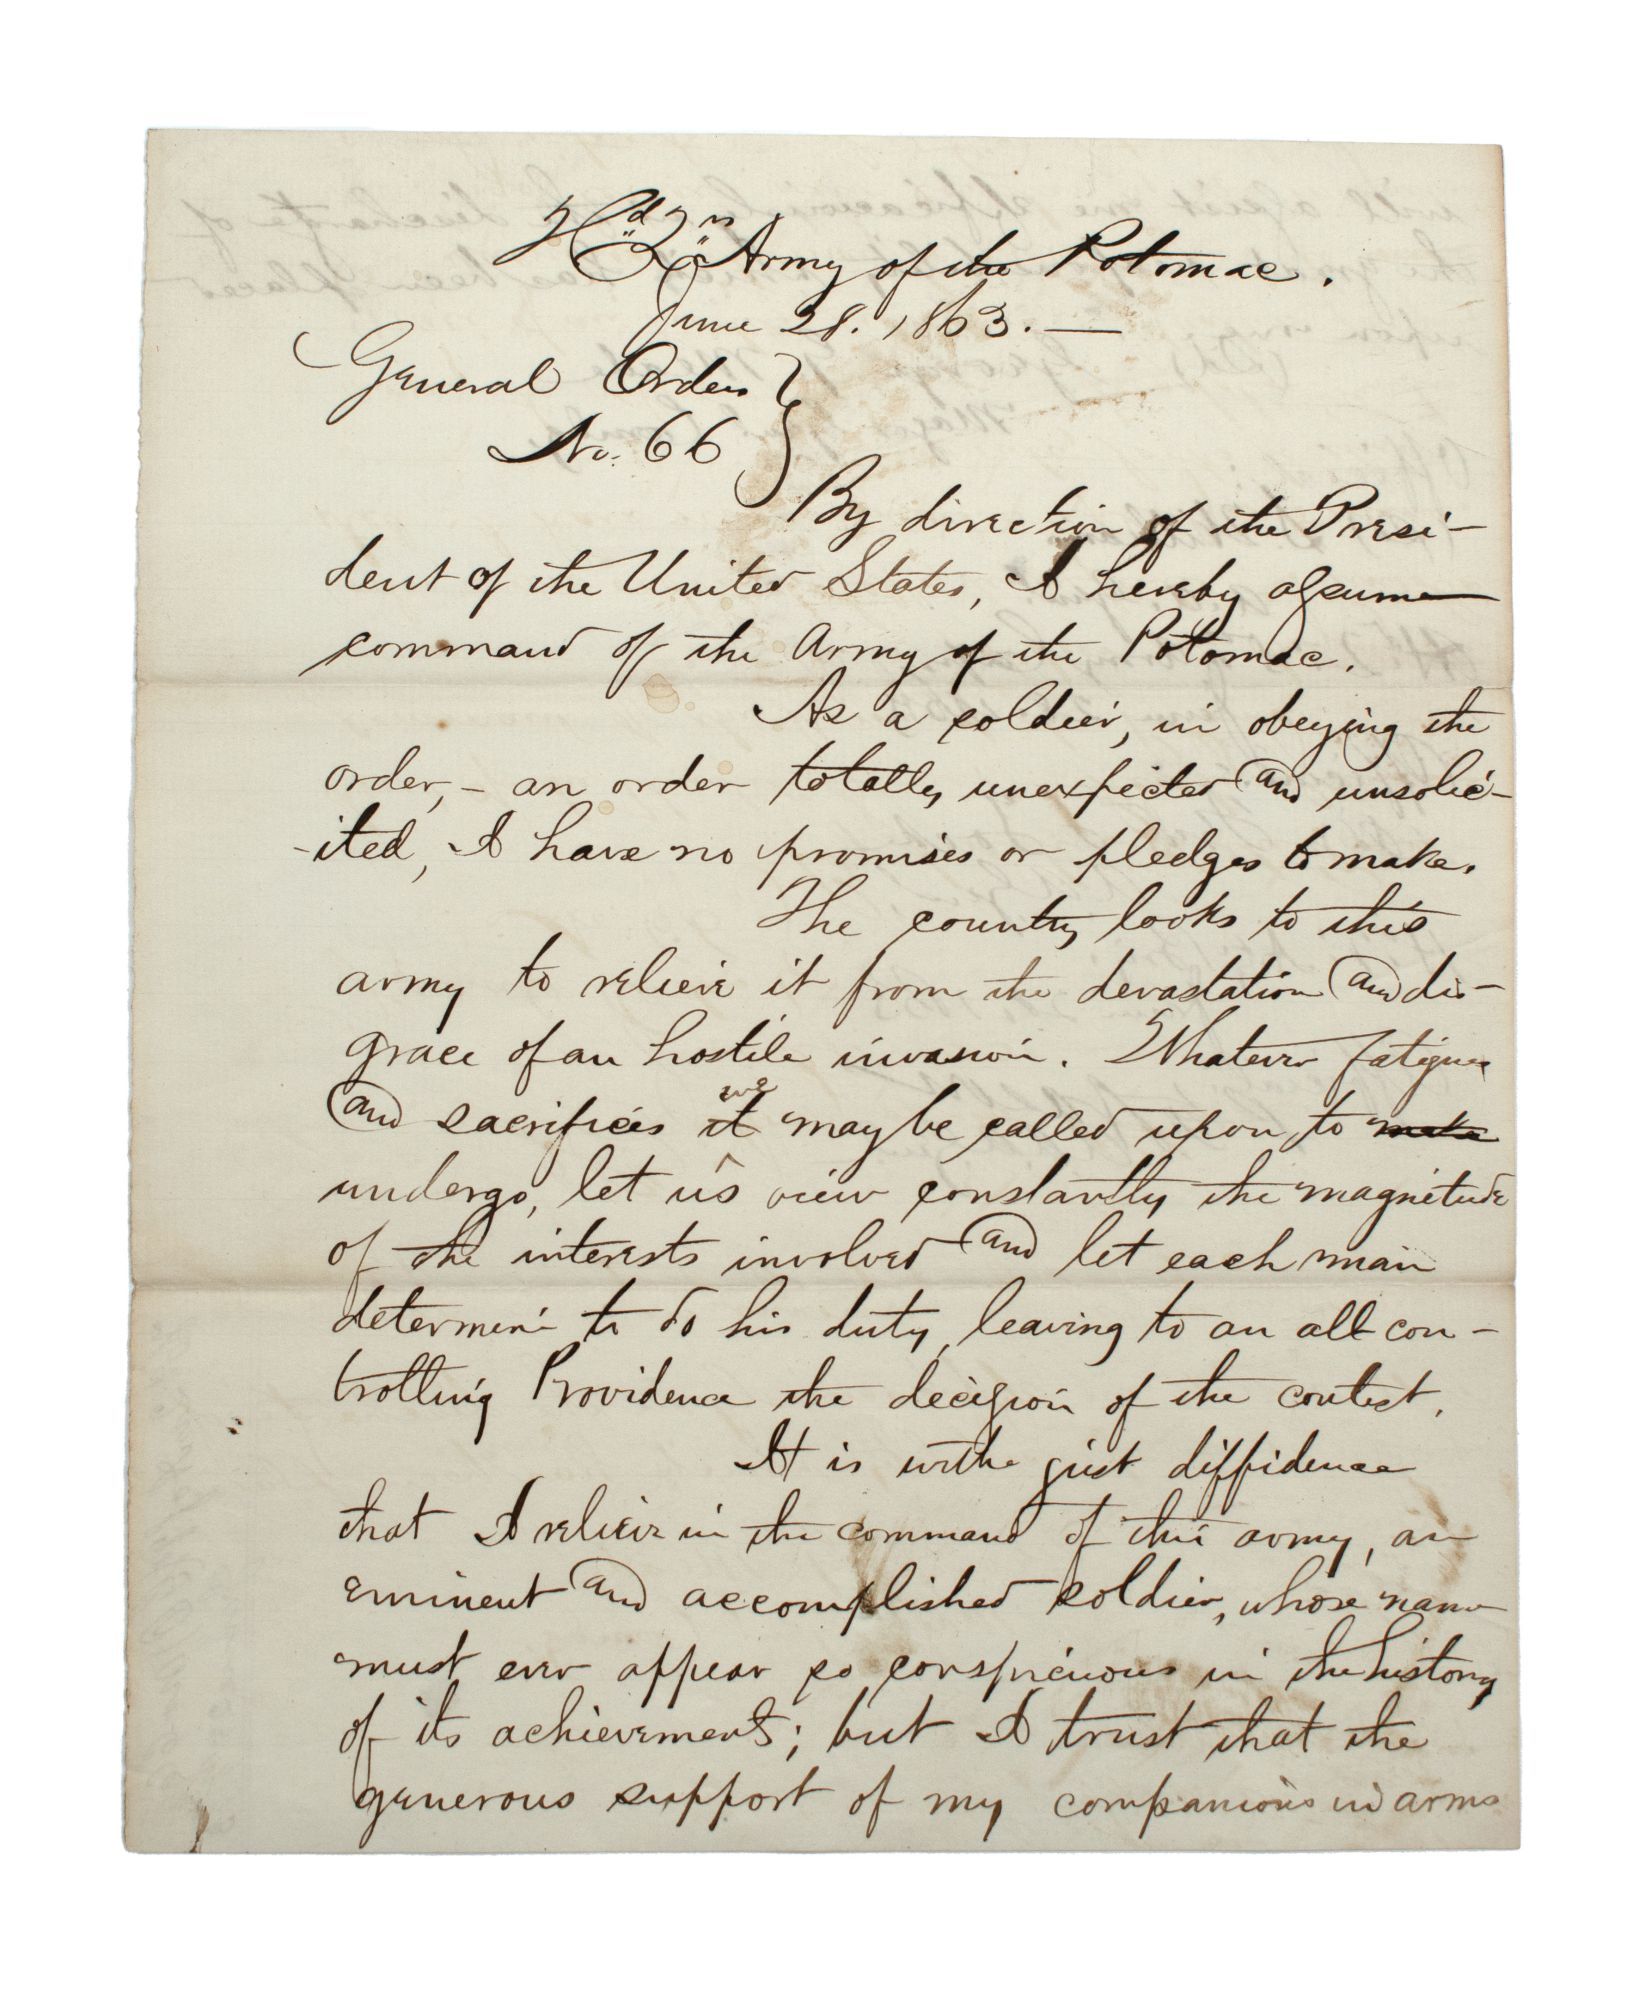 Hd Qrs Army of the Potomac.
June 28. 1863. —
General Orders
No. 66
By direction of the Presi-
dent of the United States, I hereby assume
command of the Army of the Potomac.
As a soldier, in obeying the
order, - an order totally unexpected and unsolic-
-ited, I have no promises or pledges to make.
The country looks to this
army to relieve it from the devastation and dis-
grace of an hostile invasion. Whatever fatigues
we
and sacrifices it may be called upon to make
undergo, let us view constantly the magnitude
of the interests involved and let each man
determine to do his duty, leaving to an all con-
trolling Providence the decision of the contest.
It is with just diffidence
that I relieve in the command of this army, an
eminent and accomplished soldier, whose name
must ever appear so conspicuous in the history
of its achievements; but I trust that the
generous support of my companions in arms